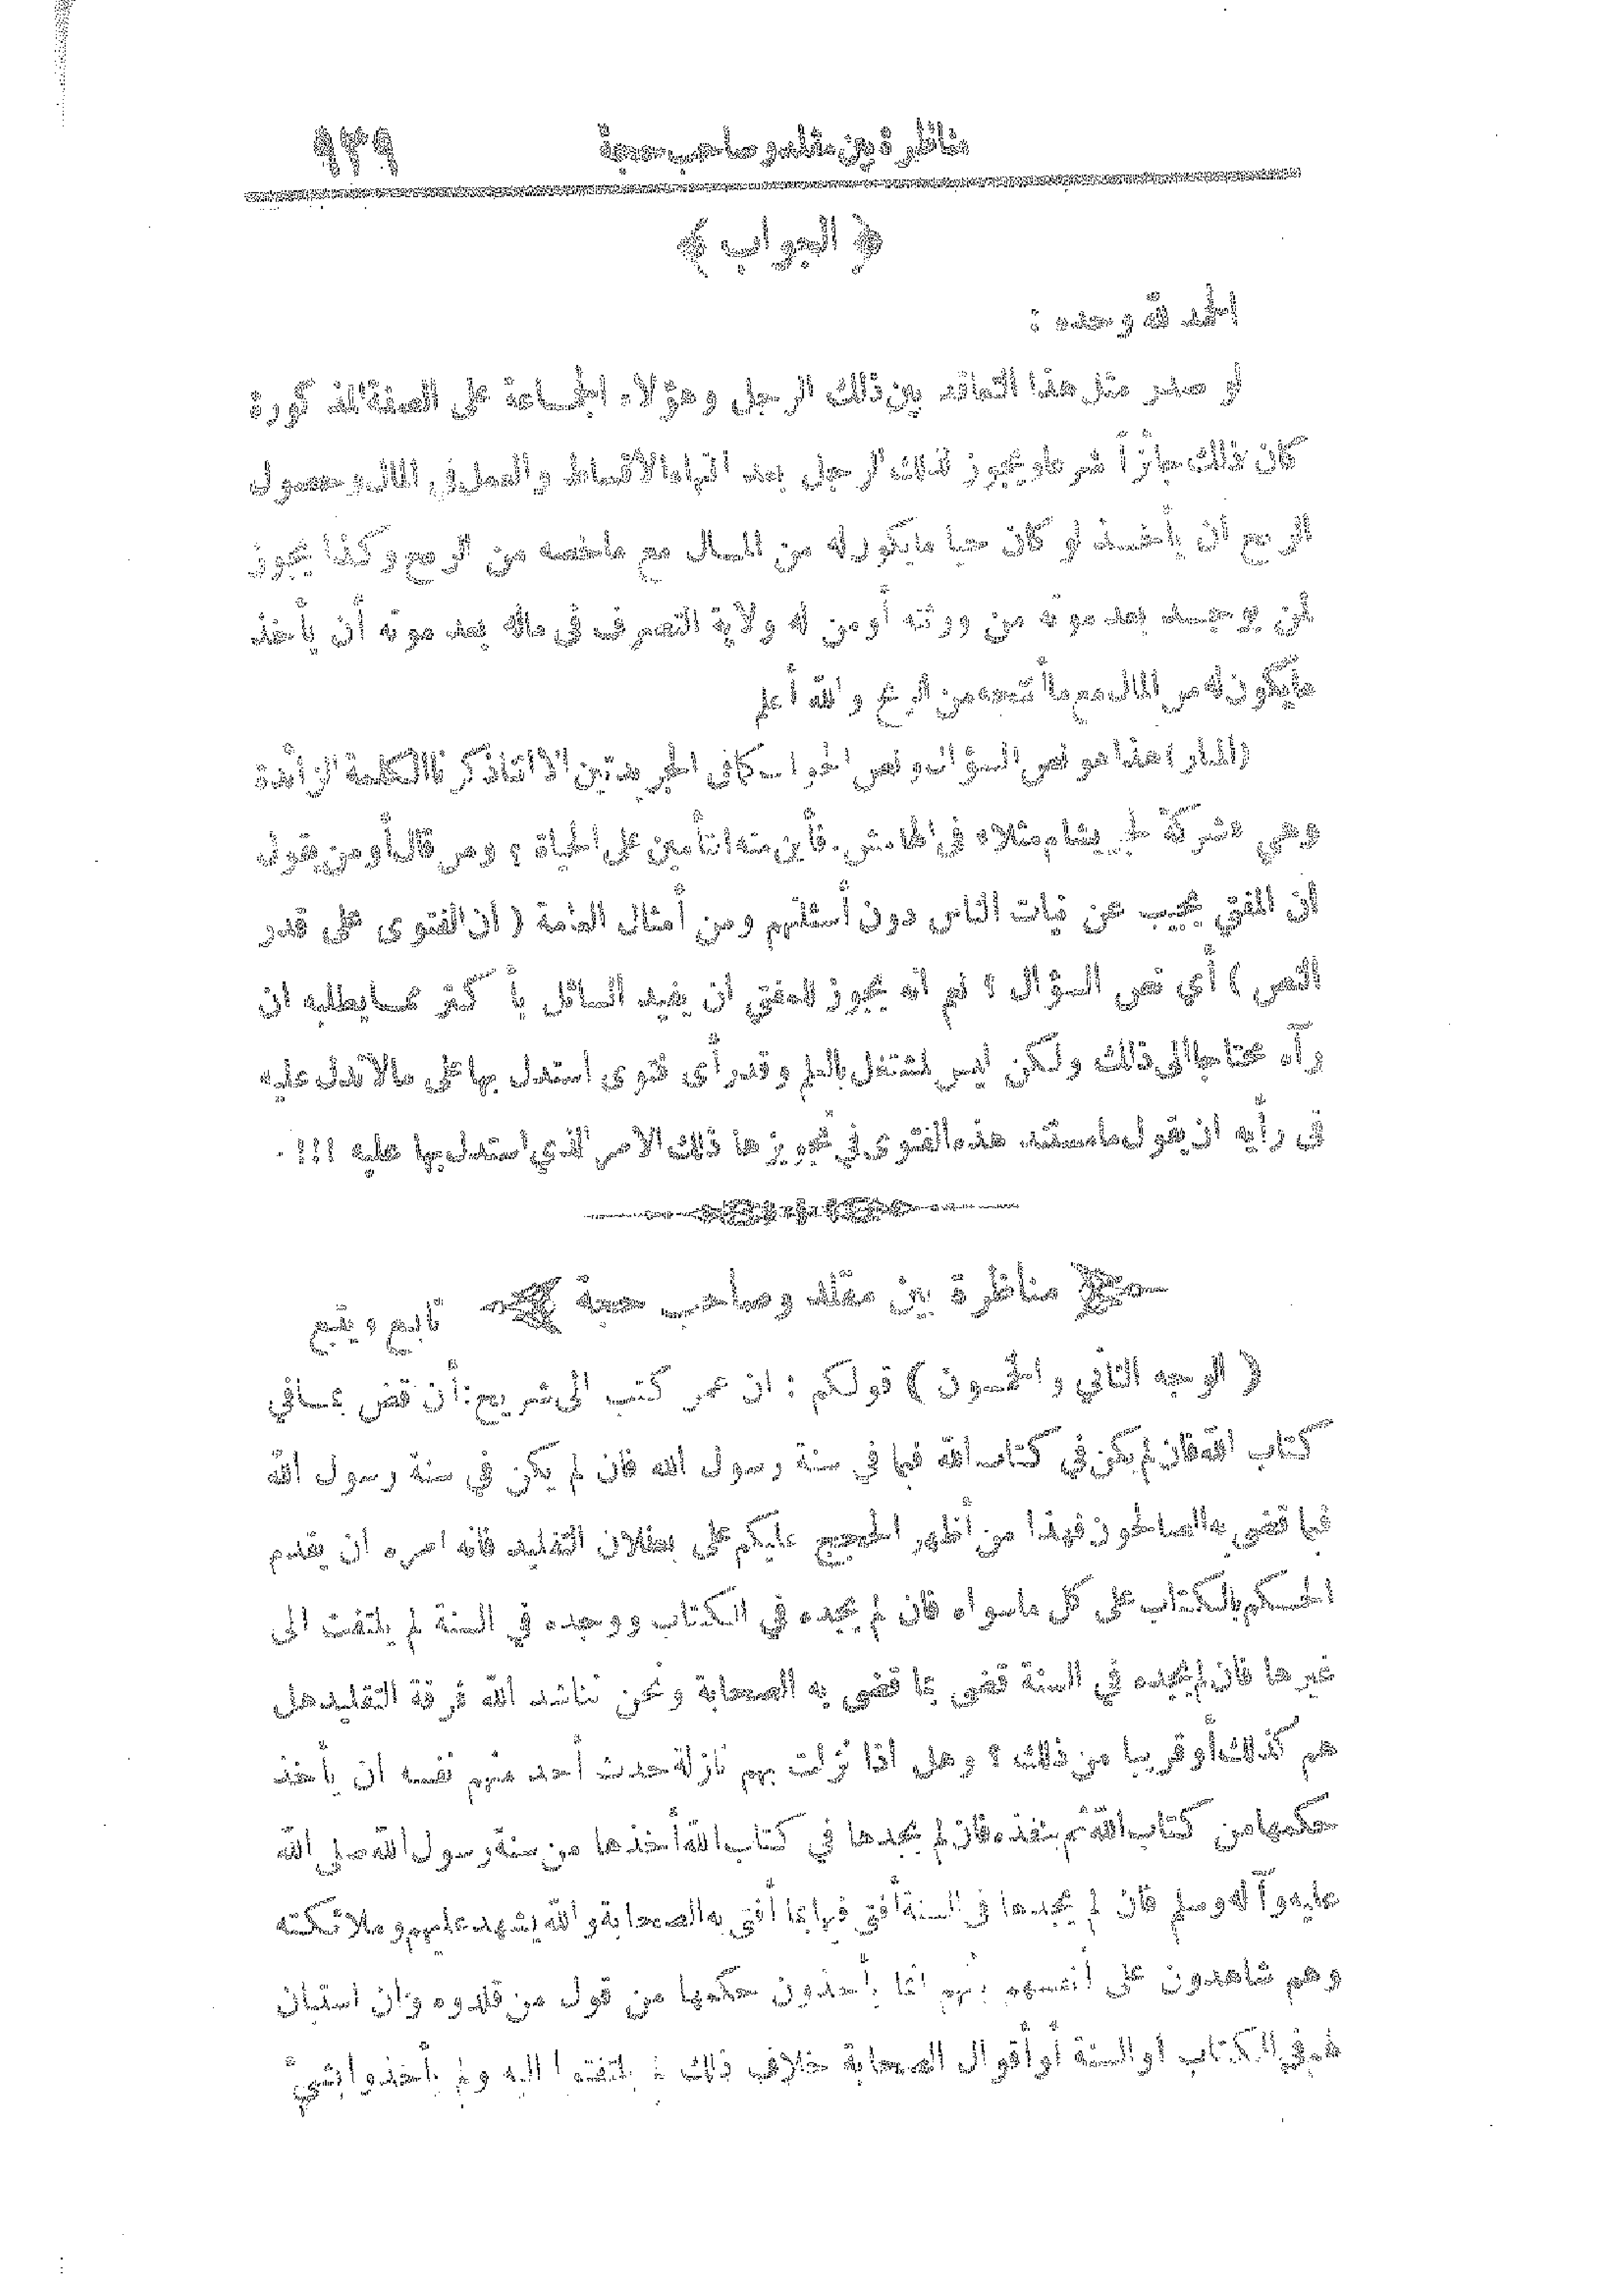 مناظرة بين مقلد وصاحب حجة ٩٣٩
﴿ الجواب ﴾
الحمد لله وحده :
لو صدر مثل هذا التعاقد بين ذلك الرجل وهؤلاء الجماعة على الصفة المذكورة
كان ذلك جائزاً شرعا ويجوز لذلك الرجل بعد انتهاء الاقساط والعمل في المال وحصول
الربح ان يأخذ لو كان حيا ما يكون له من المال مع ما خصه من الربح وكذا يجوز
لمن يوجد بعد موته من ورثته أو من له ولاية التصرف في ماله بعد موته أن يأخذ
ما يكون له من المال مع ما أنتجه من الربح والله أعلم
(المنار) هذا هو نص السؤال ونص الجواب كما في الجريدتين الا اننا ذكرنا الكلمة الزائدة
وهي «شركة لجريشام مثلا» في الهامش. فأين منه التأمين على الحياة ؟ ومن قال أو من يقول
ان المفتي يجيب عن نيات الناس دون أسئلتهم ومن أمثال العامة ( ان الفتوى على قدر
النص ) أي نص السؤال ؟ نعم انه يجوز للمفتي ان يفيد السائل بأكثر مما يطلبه ان
رآه محتاجا الى ذلك ولكن ليس لمشتغل بالعلم وقد رأى فتوى استدل بها على مالا تدل عليه
في رأيه ان يقول ما مستند هذه الفتوى في تجويزها ذلك الامر الذي استدل بها عليه !!! .
﴿ مناظرة بين مقلد وصاحب حجة ﴾ تابع ويتبع
( الوجه الثاني والخمسون ) قولكم : ان عمر كتب الى شريح: أن اقض بما في
كتاب الله فان لم يكن في كتاب الله فبما في سنة رسول الله فان لم يكن في سنة رسول الله
فبما قضى به الصالحون فهذا من أظهر الحجج عليكم على بطلان التقليد فانه امره ان يقدم
الحكم بالكتاب على كل ما سواه فان لم يجده في الكتاب ووجده في السنة لم يلتفت الى
غيرها فان لم يجده في السنة قضى بما قضى به الصحابة ونحن نناشد الله فرقة التقليد هل
هم كذلك أو قريبا من ذلك ؟ وهل اذا نزلت بهم نازلة حدث أحد منهم نفسه ان يأخذ
حكمها من كتاب الله ثم ينفذه فان لم يجدها في كتاب الله أخذها من سنة رسول الله صلى الله
عليه وآله وسلم فان لم يجدها في السنة أفتى فيها بما أفتى به الصحابة والله يشهد عليهم وملائكته
وهم شاهدون على أنفسهم بأنهم انما يأخذون حكمها من قول من قلدوه وان استبان
لهم في الكتاب او السنة أو أقوال الصحابة خلاف ذلك لم يلتفتوا اليه ولم يأخذوا بشيء